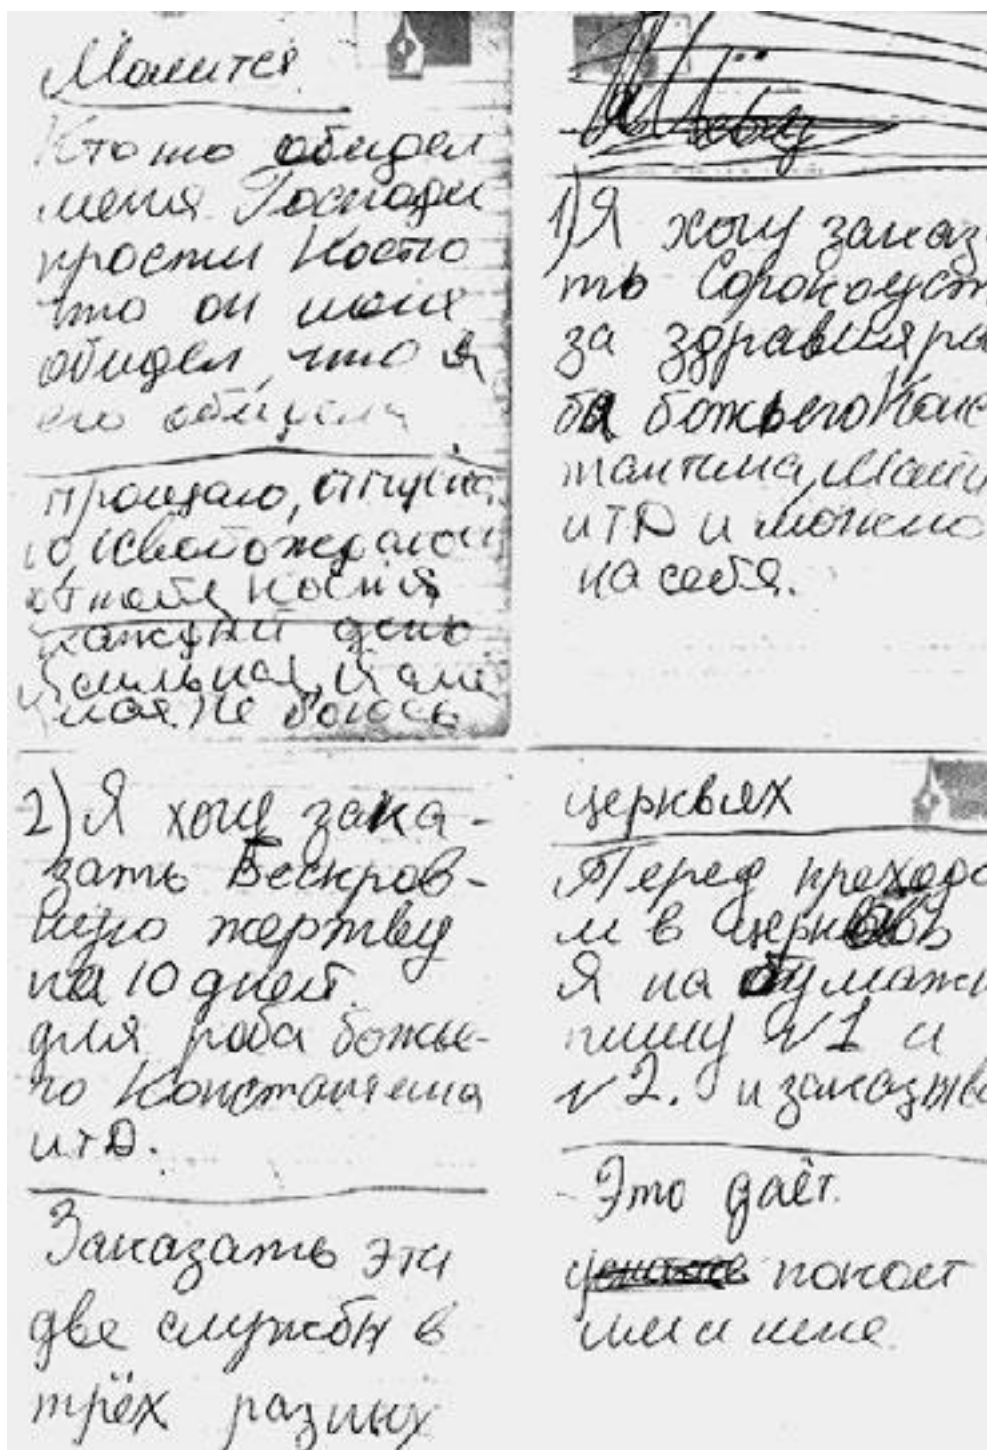 Молится
Кто то обидел
меня Господи
прости Костю
что он меня
обидел, что я
его обидела
прощаю, отпуска
ю, освобождаю
от тебя Костя
каждый день
Я сильная, Я сме
лая, не боюсь
1) Я хочу заказ
ть Сорокоуст
за здравия ра
ба божьего Конс
тантина,
и тд и можно
на себя.
2) Я хочу зака-
зать Бескров-
ную жертву
на 10 дней.
для раба божье-
го Константина
и тд.
Заказать эти
две службы в
трёх разных
церквях
Перед преходо
м в церковь
Я на бумажк
пишу №1 и
№2. и заказыва
Это даёт
покоет
им и мне.